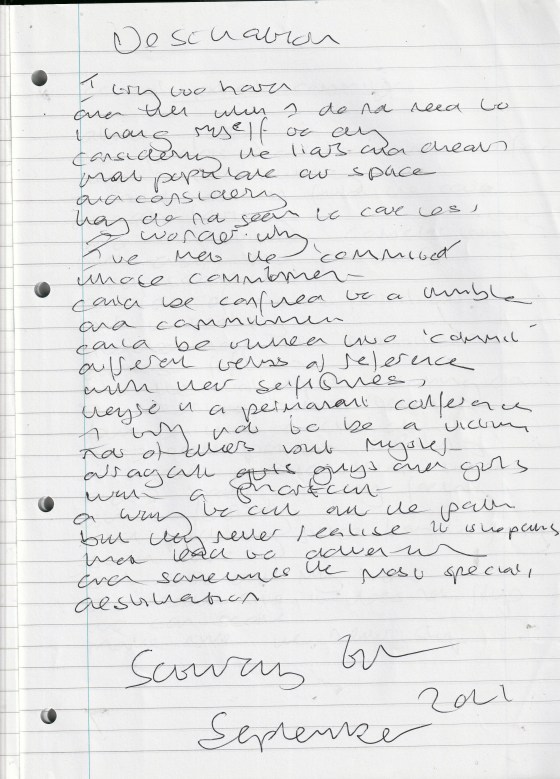 Destination
I try too hard
and then when I do no need to
I hang myself to dry
considering the liars and cheats
that populate our space
and considering
they do no seem to care less,
I wonder why
I've met the 'committed
whose commitment
could be confined to a
and commitment
could be turned into 'commit'
different terms of reference
with their selfishness,
is a permanent conference
I try not to be a victim
not of others but myself
arrogant guys and girls
with a shortcut
a way to cut out the path
but they never realise it is the paths
that lead to adventure
and sometimes the most special,
destination
September 2021